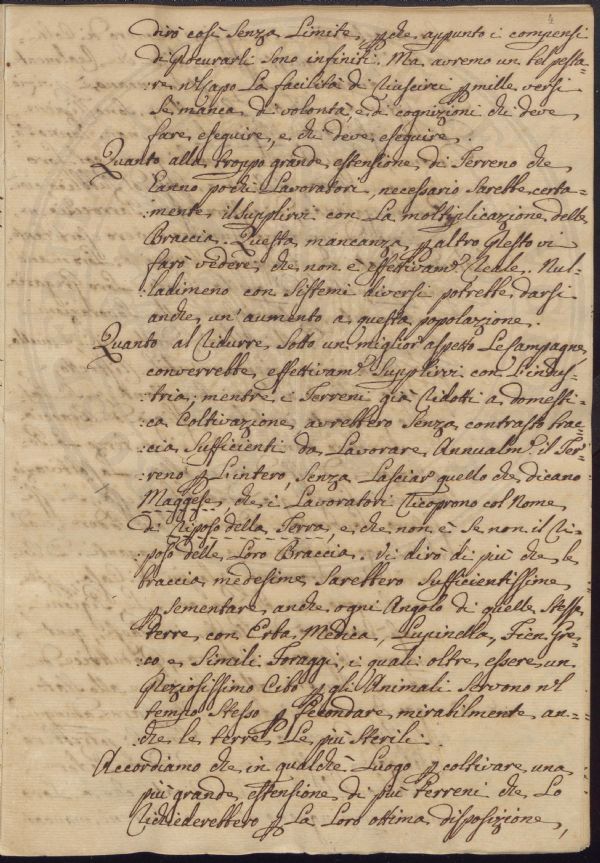 4
dirò così senza Limite, pche appunto i compensi
di procurarli sono infiniti. Ma avremo un bel pesta=
re nl capo La facilità di riuscirci p mille versi
se manca di volontà, e di cognizioni chi deve
fare eseguire, e chi deve eseguire.
Quanto alla troppo grande estensione di Terreno che
Eanno pochi Lavoratori, necessario sarebbe certa=
=mente, il supplirvi con La moltiplicazione delle
Braccia. Questa mancanza p altro presto vi
farò vedere, che non è effettivamte reale. Nul=
ladimeno con sistemi diversi potrebbe darsi
anche un'aumento a questa popolazione.
Quanto al ridurre sotto un miglior aspetto Le Campagne
converrebbe effettivamte supplirvi con L'indus=
=tria; mentre i Terreni già ridotti a domesti=
=ca Coltivazione avrebbero senza contrasto brac=
=cia sufficienti da Lavorare Annualmte il Ter=
=reno p L'intero, senza Lasciar quello che dicano
Maggese, che i Lavoratori ricoprono col Nome
di riposo della Terra, e che non è se non il ri=
=poso delle Loro Braccia. Vi dirò di più che le
braccia medesime sarebbero sufficientissime
p sementare anche ogni Angolo di quelle stesse
terre con Erba Medica, Lupinella, Fien Gre=
co e simili Foraggi, i quali oltre essere un
preziosissimo Cibo p gli Animali servono nl
tempo stesso p fecondare mirabilmente an=
=che le terre Le più sterili.
Accordiamo che in qualche Luogo p coltivare una
più grande estensione di più terreni che Lo
richiederebbero p La Loro ottima disposizione,